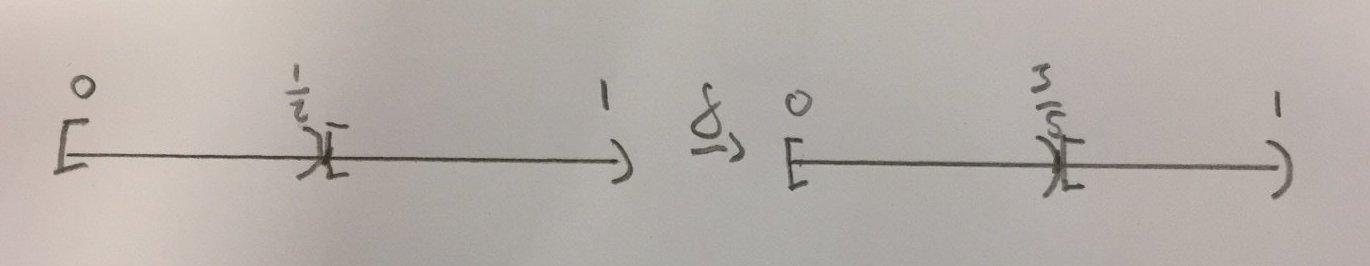 0 1/2 1 g → 0 3/5 1
[ )[ ) [ )[ )